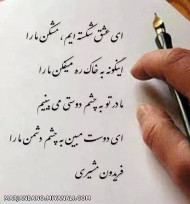 ای عشق شکسته ایم ، مشکن ما را
اینگونه به خاک ره میفکن ما را
ما در تو به چشم دوستی می بینیم
ای دوست مبین به چشم دشمن ما را
فریدون مشیری